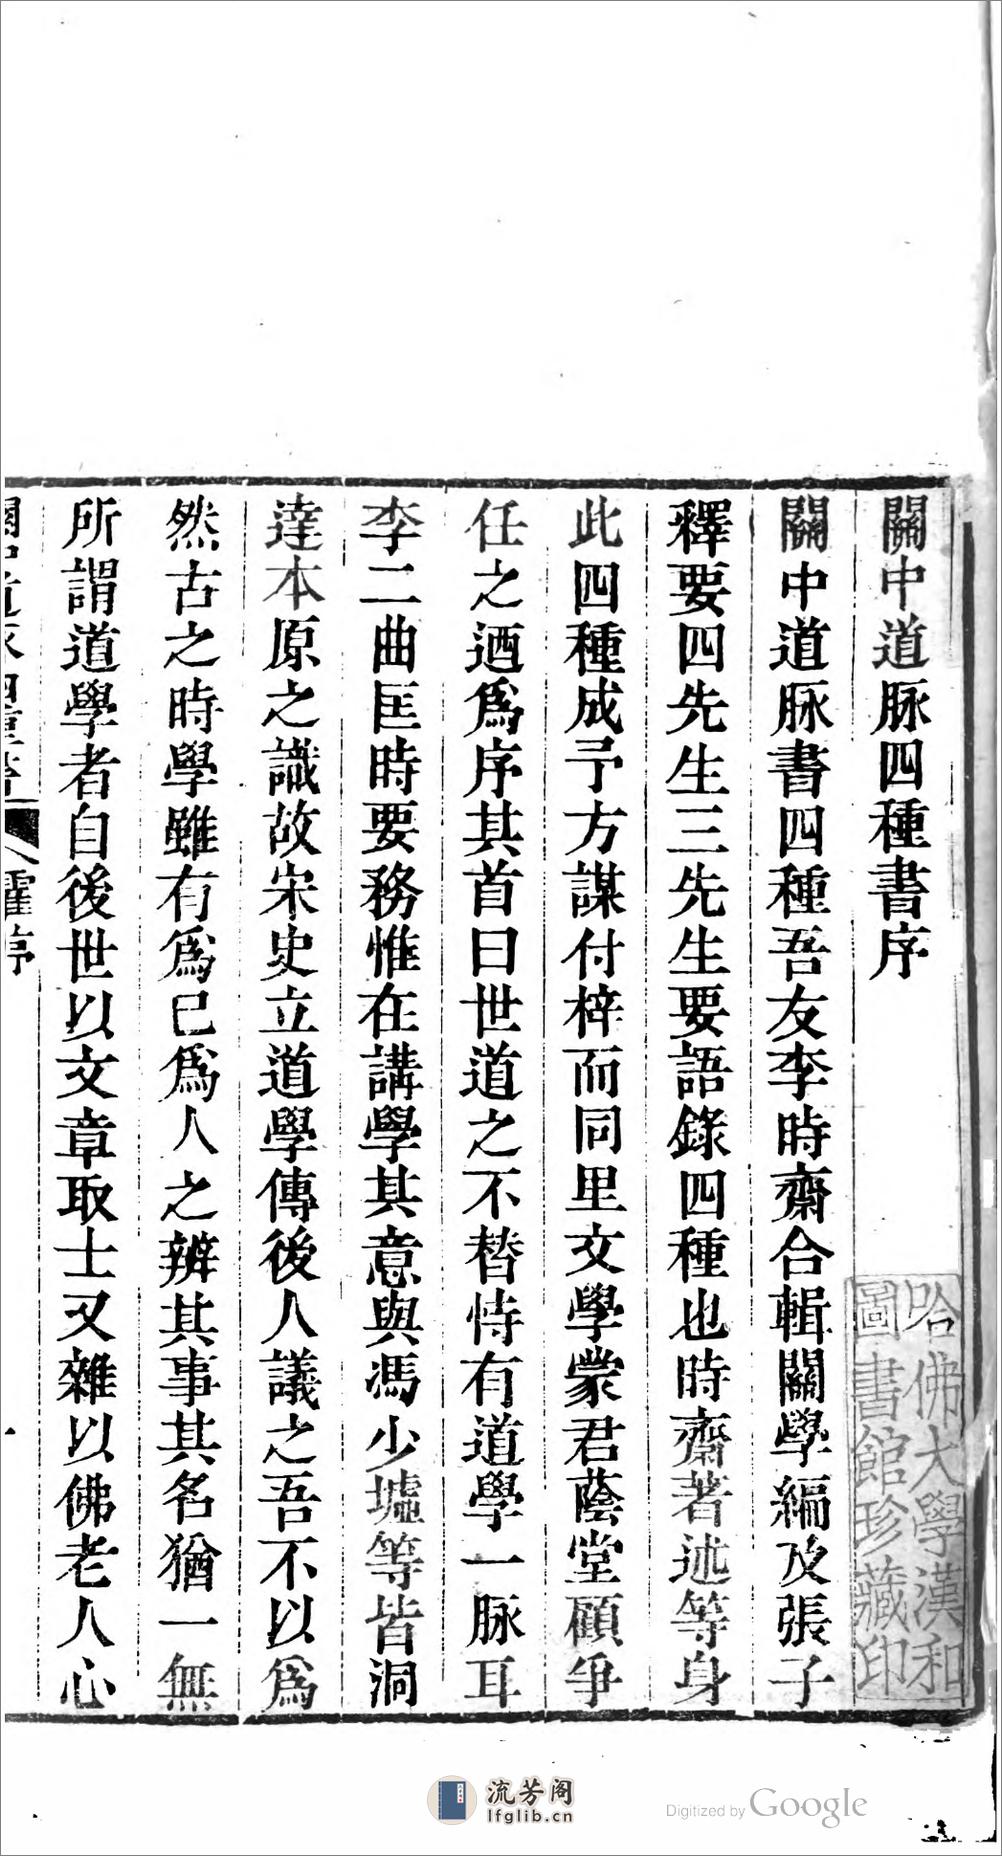 關中道脉四種書序
關中道脉書四種吾友李時齋合輯關學編及張子
釋要四先生三先生要語錄四種也時齋著述等身
此四種成予方謀付梓而同里文學蒙君蔭堂願爭
任之迺爲序其首曰世道之不替恃有道學一脉耳
李二曲匡時要務惟在講學其意與馮少墟等皆洞
達本原之識故宋史立道學傳後人議之吾不以爲
然古之時學雖有爲已爲人之辨其事其名猶一無
所謂道學者自後世以文章取士又雜以佛老人心
關中道脉四種書 霍序 一
哈佛大學漢和
圖書館珍藏印
流芳阁
lfglib.cn
Digitized by Google